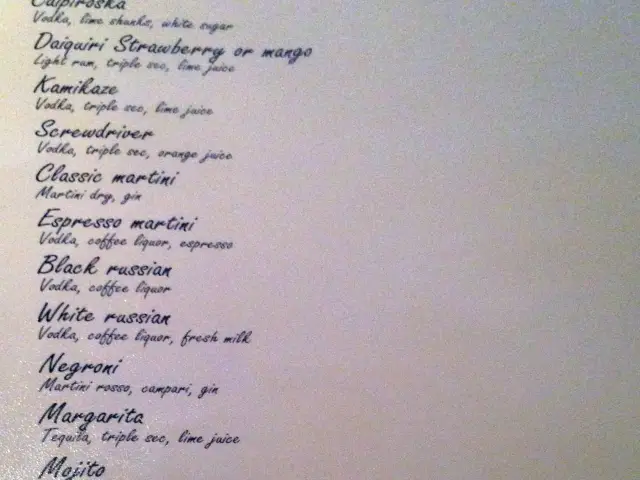 Caipiroska
Vodka, lime shunks, white sugar
Daiquiri Strawberry or mango
Light rum, triple sec, lime juice
Kamikaze
Vodka, triple sec, lime juice
Screwdriver
Vodka, triple sec, orange juice
Classic martini
Martini dry, gin
Espresso martini
Vodka, coffee liquor, espresso
Black russian
Vodka, coffee liquor
White russian
Vodka, coffee liquor, fresh milk
Negroni
Martini rosso, campari, gin
Margarita
Tequila, triple sec, lime juice
Mojito